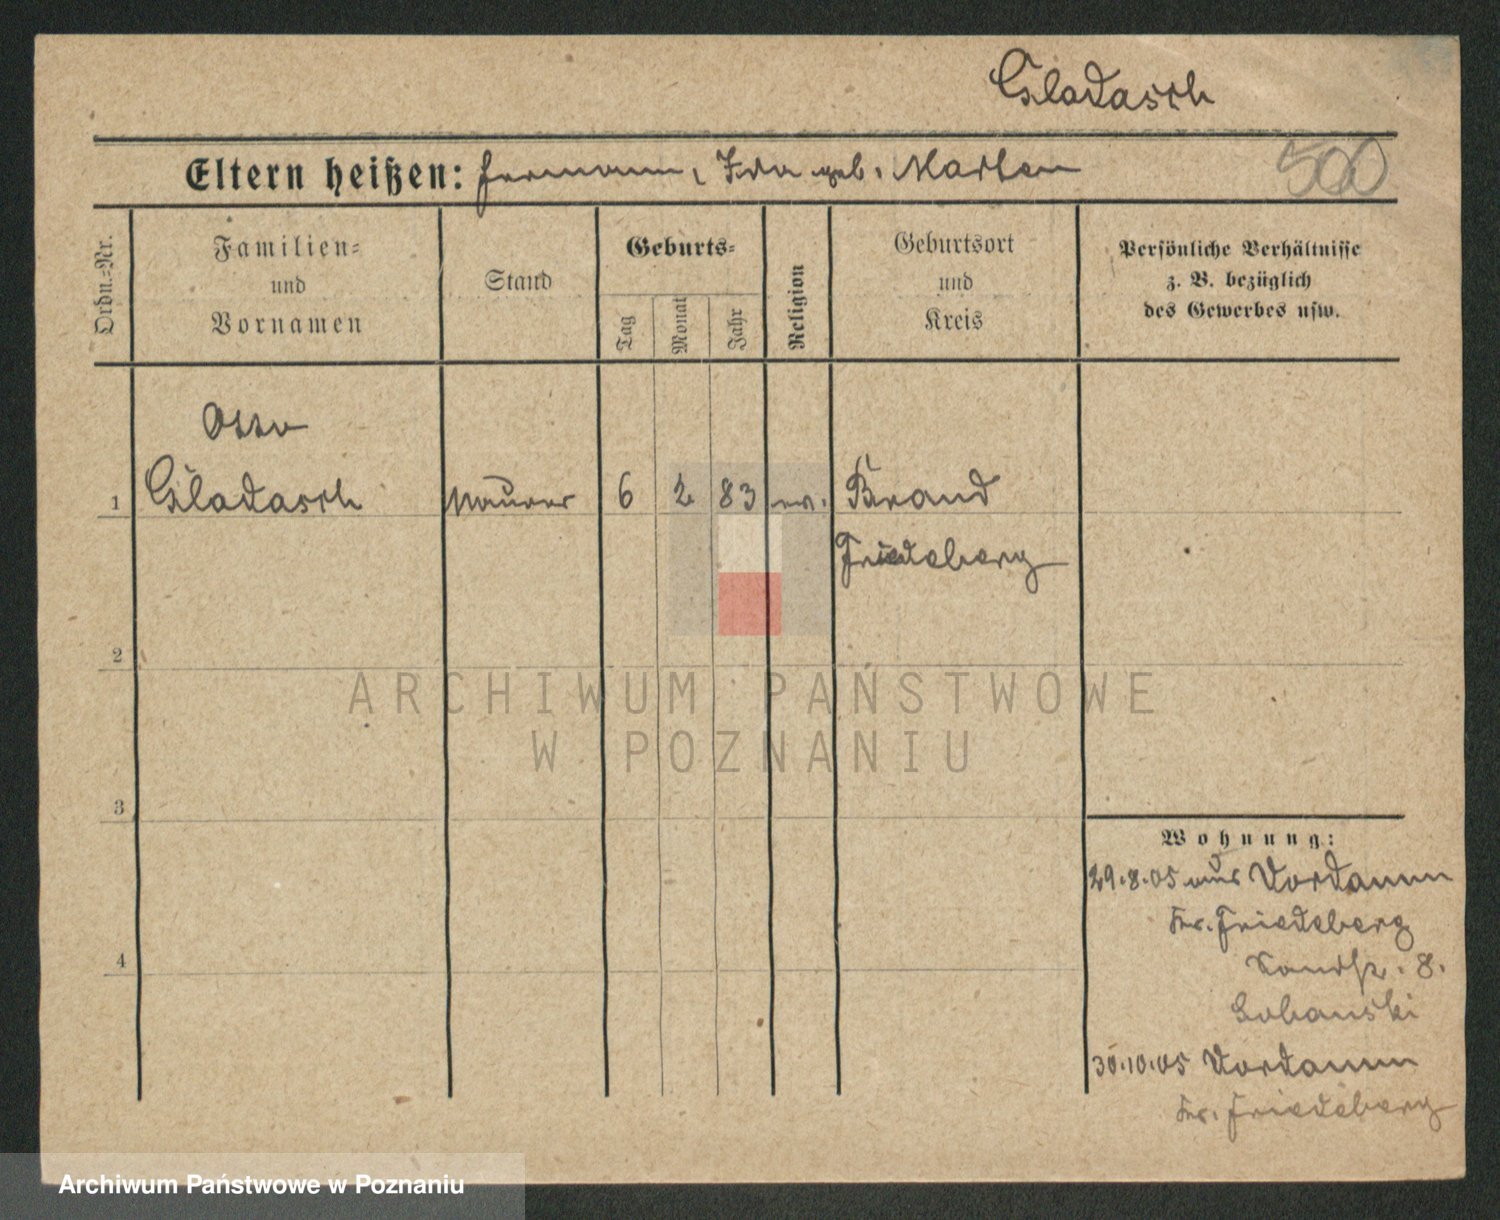 Gladasch
Eltern heißen: Hermann, Ida geb. Marten
500
Ordn.-Nr.
Familien-
und
Vornamen
Stand
Geburts-
Tag
Monat
Jahr
Religion
Geburtsort
und
Kreis
Persönliche Verhältnisse
z. B. bezüglich
des Gewerbes usw.
Otto
1 Gladasch Maurer 6 2 83 ev. Brand
Friedeberg
2
ARCHIWUM PAŃSTWOWE
W POZNANIU
3
Wohnung:
29.8.05 aus Vordamm
Kr. Friedeberg
Sandstr. 8.
4
30.10.05 Vordamm
Kr. Friedeberg
Archiwum Państwowe w Poznaniu